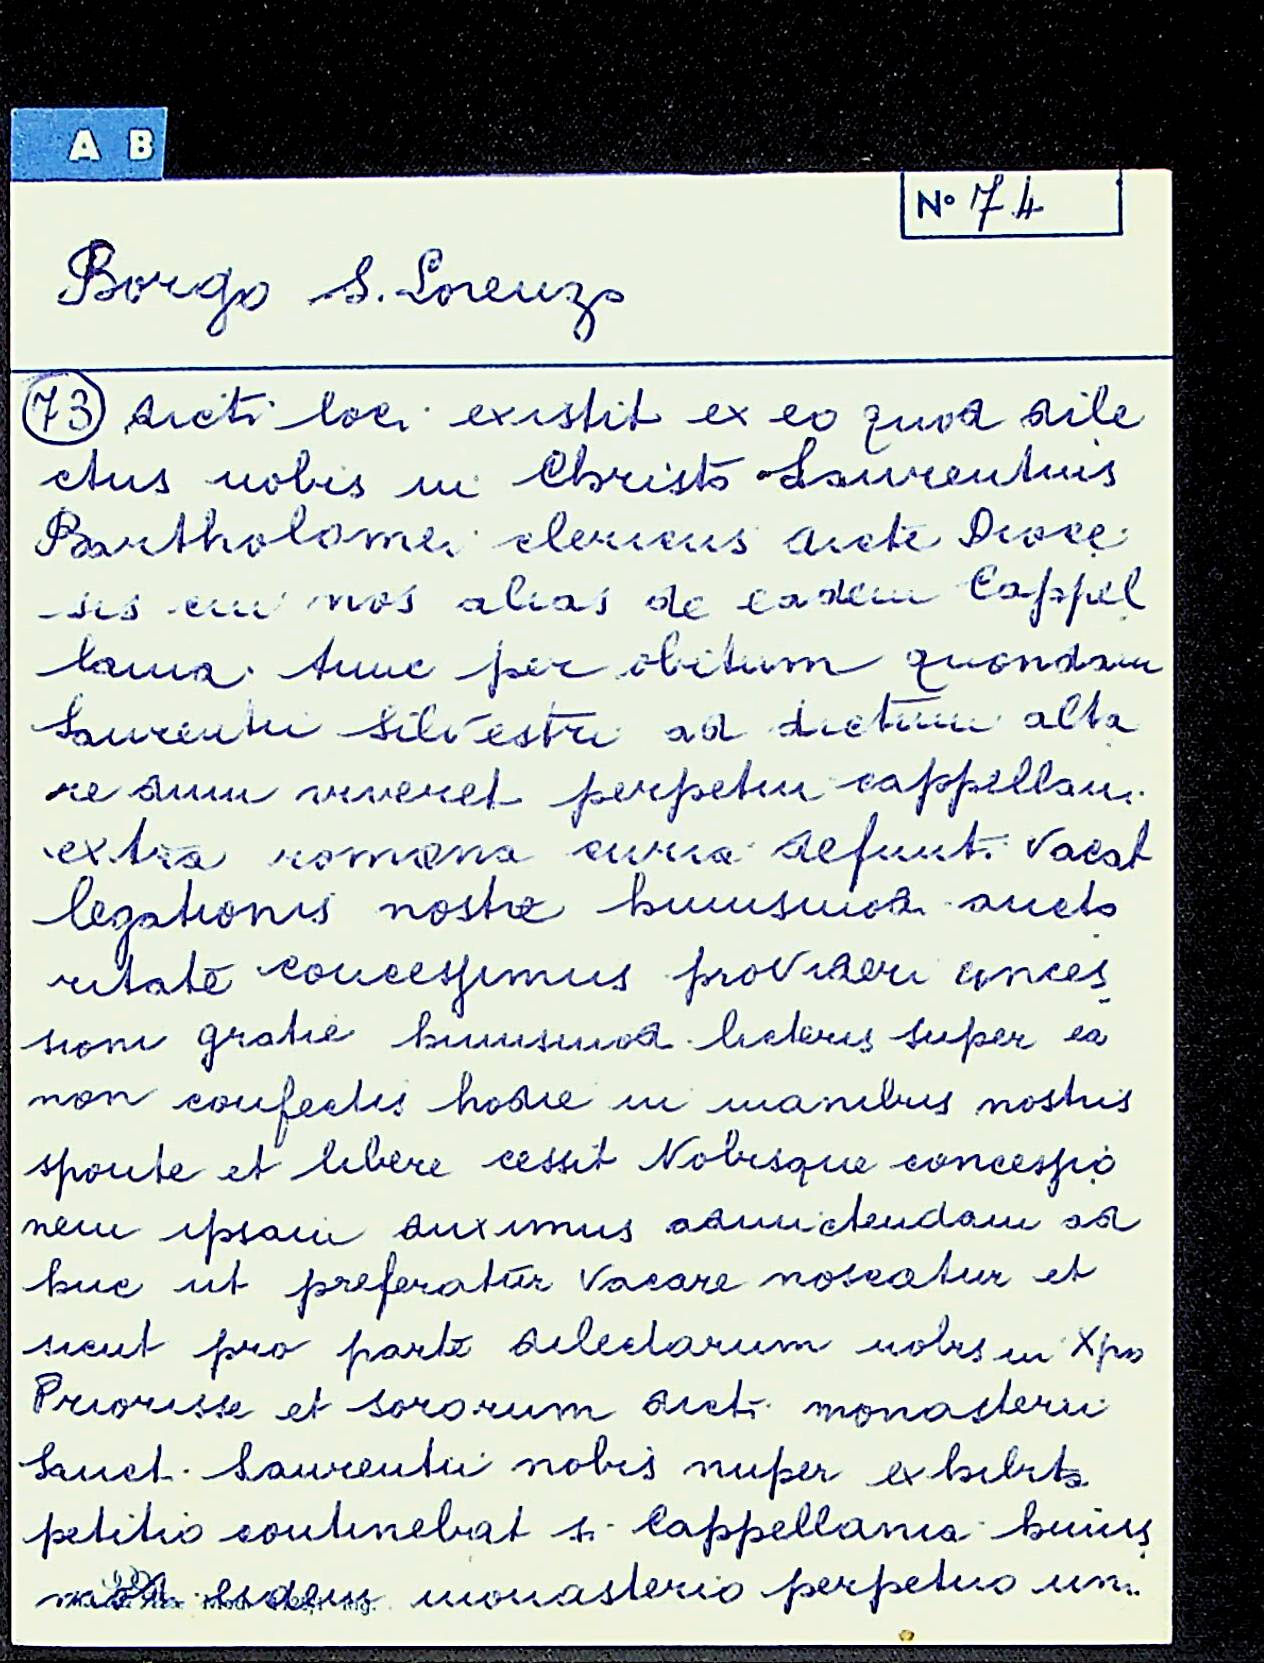 A B
Nº 74
Borgo S. Lorenzo
73 dicti loci existit ex eo quod dile
ctus nobis in Christo Laurentius
Bartholomei clericus dicte Dioce
sis cui nos alias de eadem Cappel
lania tunc per obitum quondam
Laurentii Silvestri ad dictum alta
re dum viveret perpetui cappellani
extra romana curia defunti vacat
legationis nostre huiusmodi aucto
ritate concessimus provideri conces
sioni gratie huiusmodi licteris super ea
non confectis hodie in manibus nostris
sponte et libere cessit Nobisque concessio
nem ipsam duximus admictendam ad
huc ut preferatur vacare noscatur et
sicut pro parte dilectarum nobis in Xpo
Priorisse et sororum dicti monasterii
Sancti Laurentii nobis nuper exhibita
petitio continebat si Cappellania huius
modi eidem monasterio perpetuo uni